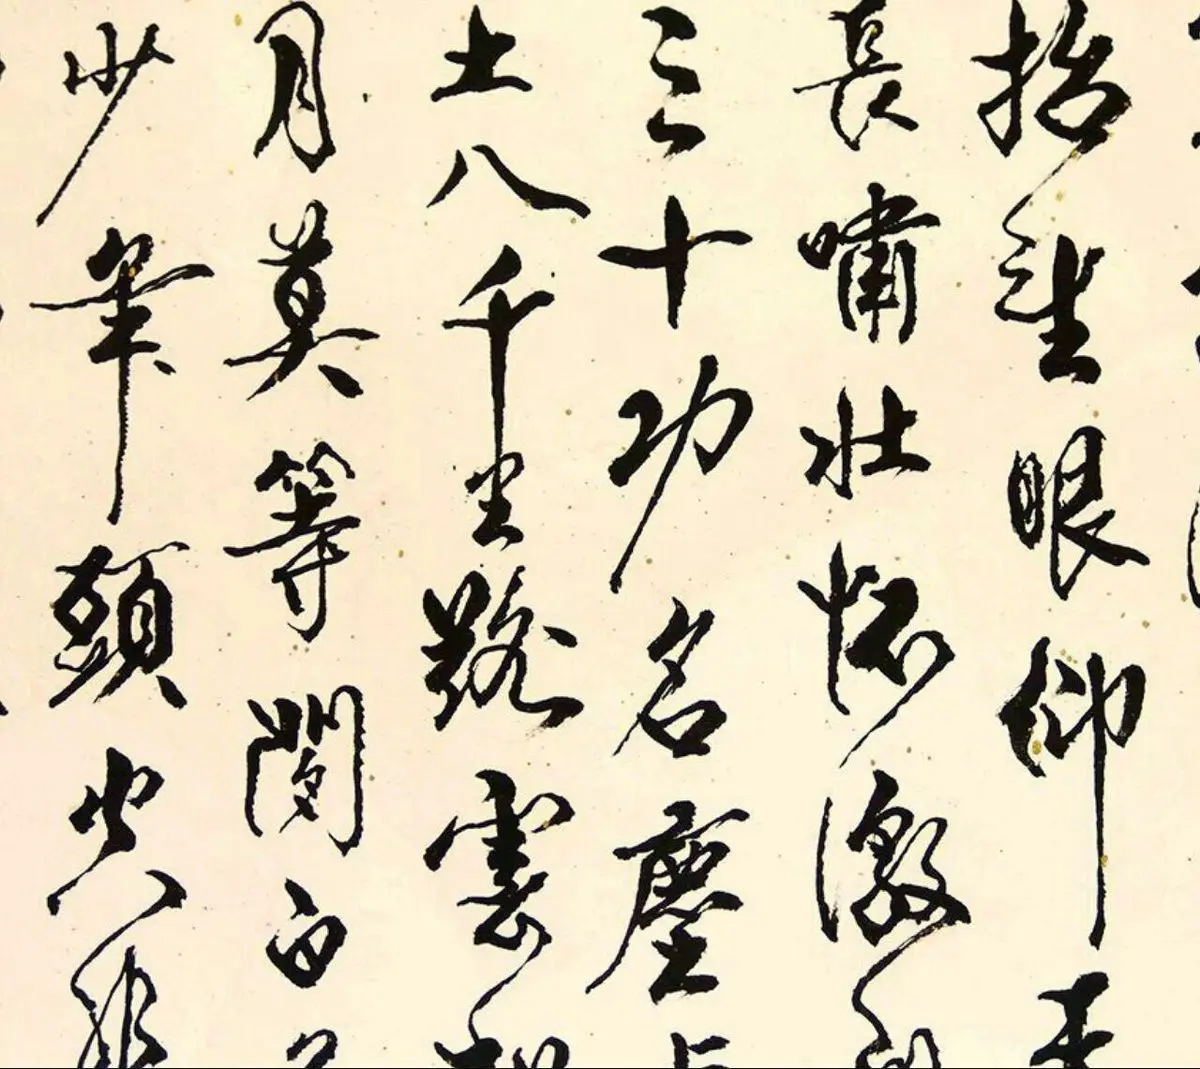 抬望眼仰天
長嘯壯懷激烈
三十功名塵与
土八千里路雲和
月莫等閑白了
少年頭空悲